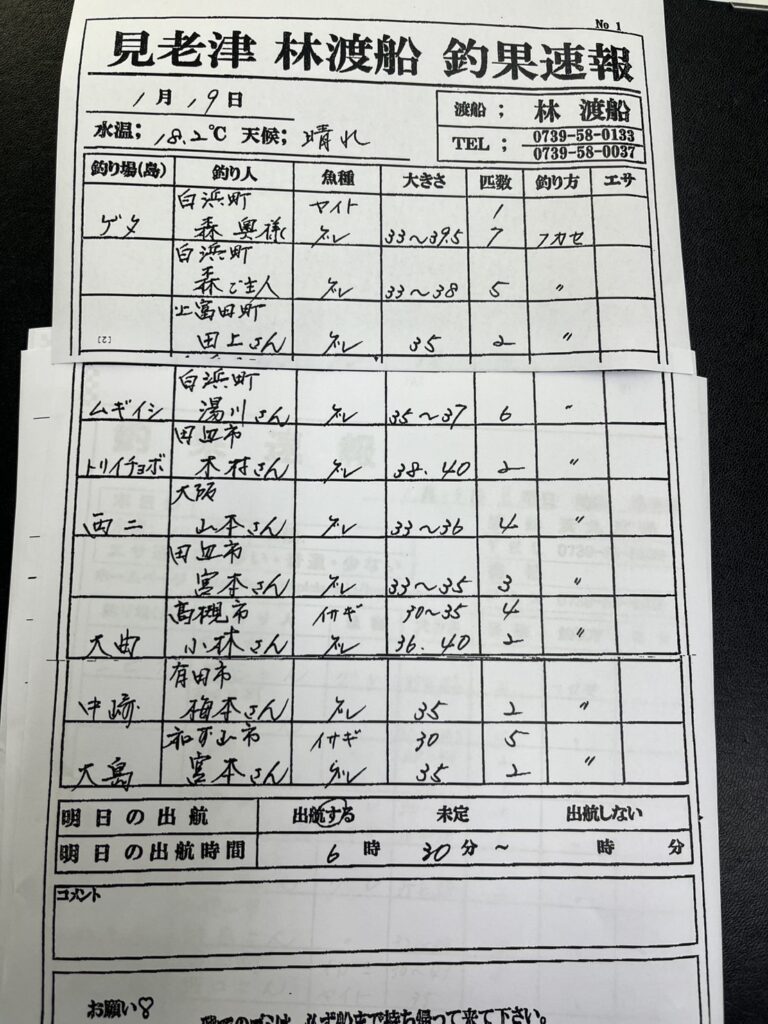 No 1
見老津 林渡船 釣果速報
1月19日
渡船； 林 渡船
水温； 18.2℃ 天候； 晴れ
TEL； 0739-58-0133
0739-58-0037
釣り場(島) 釣り人 魚種 大きさ 匹数 釣り方 エサ
白浜町 ヤイト 1
ゲタ 森 奥様 グレ 33〜39.5 7 フカセ
白浜町
森ご主人 グレ 33〜38 5 〃
上富田町
[2] 田上さん グレ 35 2 〃
白浜町
ムギイシ 湯川さん グレ 35〜37 6 〃
田辺市
トリイチョボ 木村さん グレ 38.40 2 〃
大阪
西二 山本さん グレ 33〜36 4 〃
田辺市
宮本さん グレ 33〜35 3 〃
高槻市 イサギ 30〜35 4
大曲 小林さん グレ 36.40 2 〃
有田市
中崎 梅本さん グレ 35 2 〃
和歌山市 イサギ 30 5
大島 宮本さん グレ 35 2 〃
明日の出航 出航する 未定 出航しない
明日の出航時間 6時 30分〜 時 分
コメント
お願い♡
必ず船まで持ち帰って来て下さい。